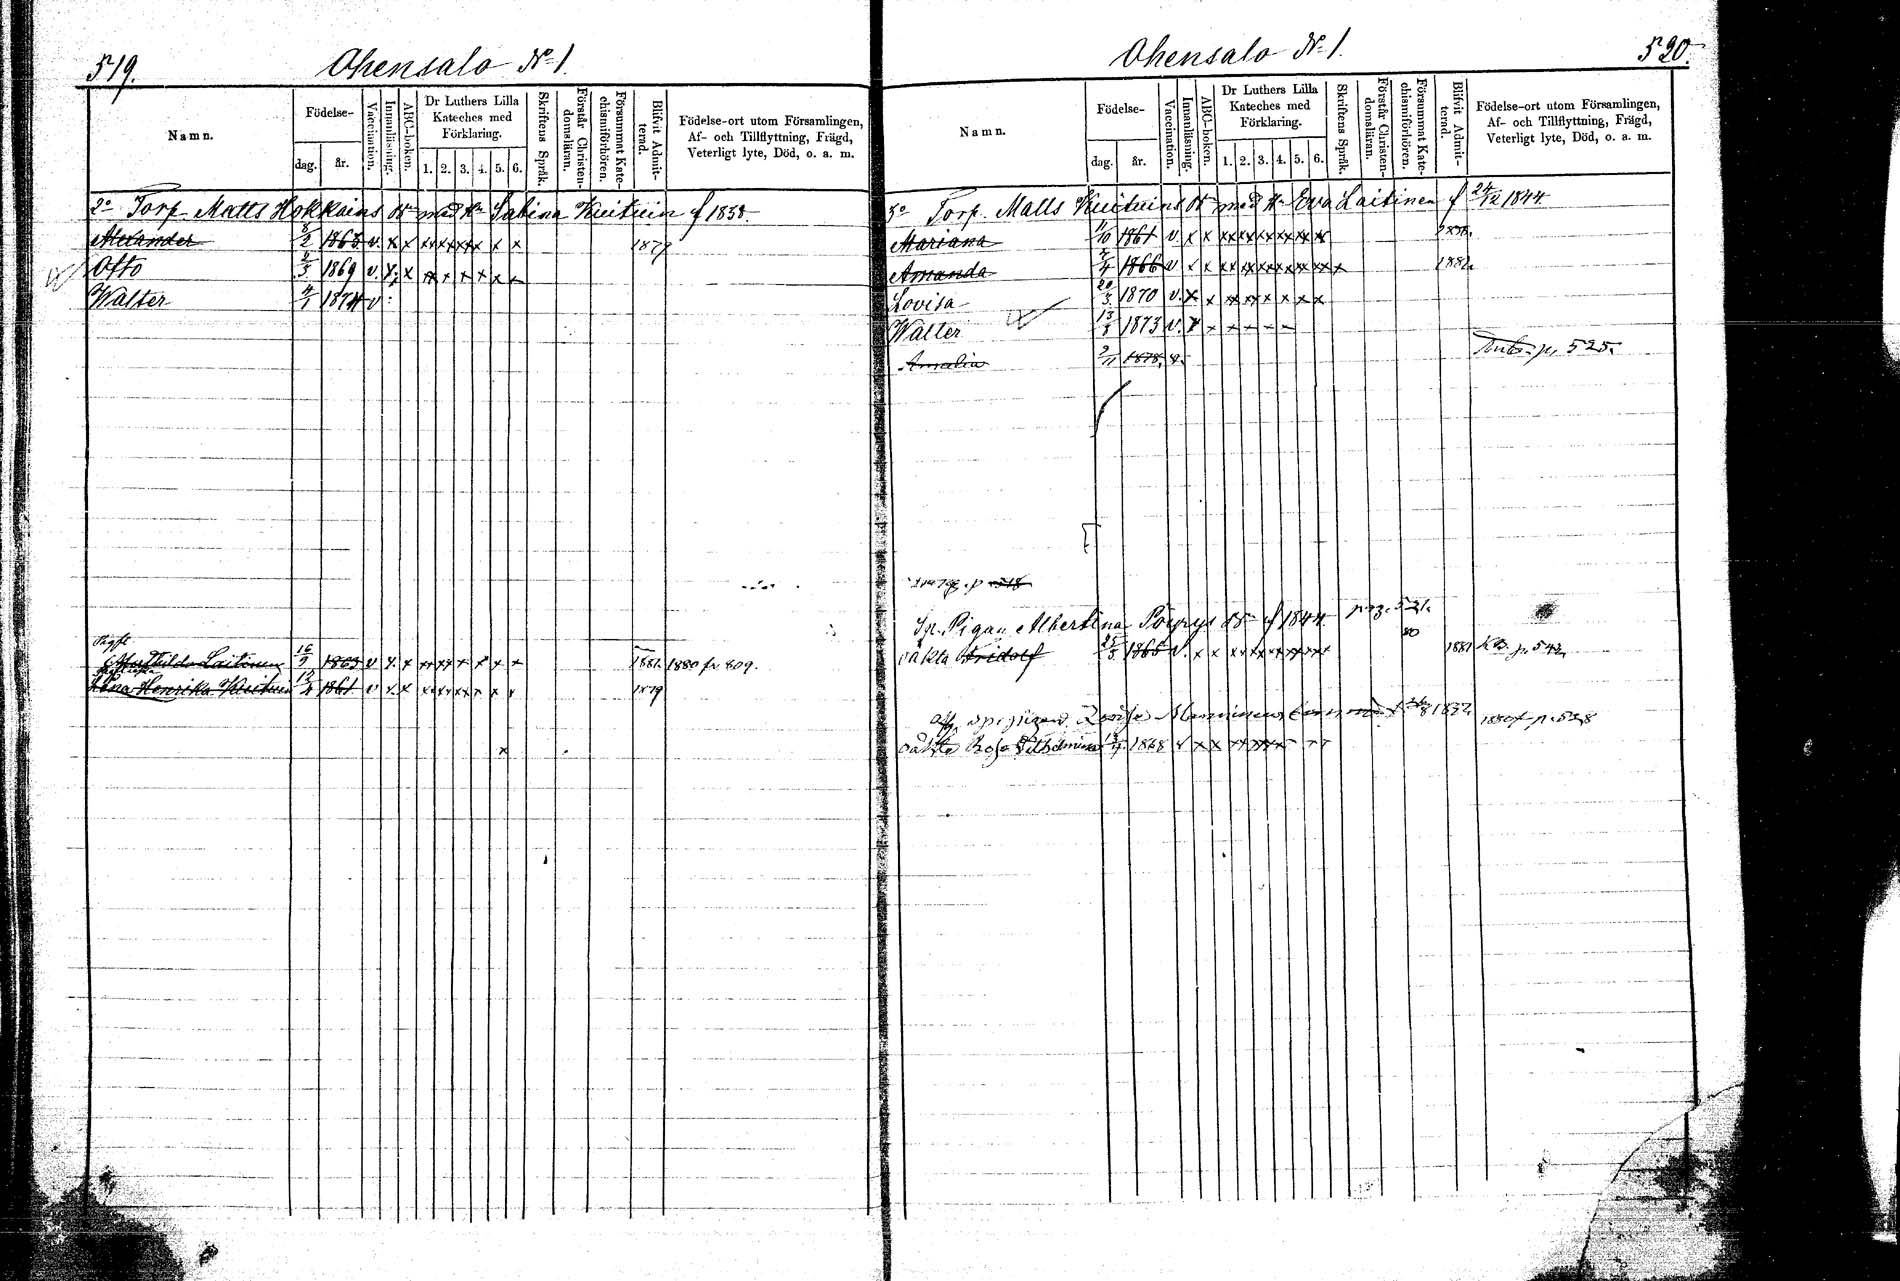 519.
Ohensalo No 1.
Namn.
Födelse-
dag.
år.
Vaccination.
Innanläsning.
ABC-boken.
Dr Luthers Lilla
Kateches med
Förklaring.
1. 2. 3. 4. 5. 6.
Skriftens Språk.
Förstår Christen-
domsläran.
Försummat Kate-
chismiförhören.
Blifvit Admit-
terad.
Födelse-ort utom Församlingen,
Af- och Tillflyttning, Frägd,
Veterligt lyte, Död, o. a. m.
2o Torp. Matts Hokkains Br med H. Sabina Kuituin f 1838.
Alexander 8/2 1863 v. x x xx xx xx x x x 1879
Otto 1869 v. x x xx x x x x x
Walter 4/1 1874 v
Mathilda Laitinen 16/9 1863 v x. x 1882 1880 fr 809.
Lena Henrika Kuituin 1861 v x. x 1879
520.
Ohensalo No 1.
Namn.
Födelse-
dag.
år.
Vaccination.
Innanläsning.
ABC-boken.
Dr Luthers Lilla
Kateches med
Förklaring.
1. 2. 3. 4. 5. 6.
Skriftens Språk.
Förstår Christen-
domsläran.
Försummat Kate-
chismiförhören.
Blifvit Admit-
terad.
Födelse-ort utom Församlingen,
Af- och Tillflyttning, Frägd,
Veterligt lyte, Död, o. a. m.
3o Torp. Matts Kuituins Br med H. Eva Laitinen f 24/12 1844
Mariana 11/10 1861 v. x x
Amanda 1866 v x x 1882
Lovisa 20/3 1870 v. x x
Walter 1873 v. x x x x x
Amalia 9/11 1878. v. p. 525.
p 518
Sp. Pigan Albertina f 1844 p. 521.
oäkta Fridolf 25/3 1865 v. x x 1881 p. 542
Lovisa 1832 1880 p. 528
oäkta Rosa Vilhelmina 1868 v x x